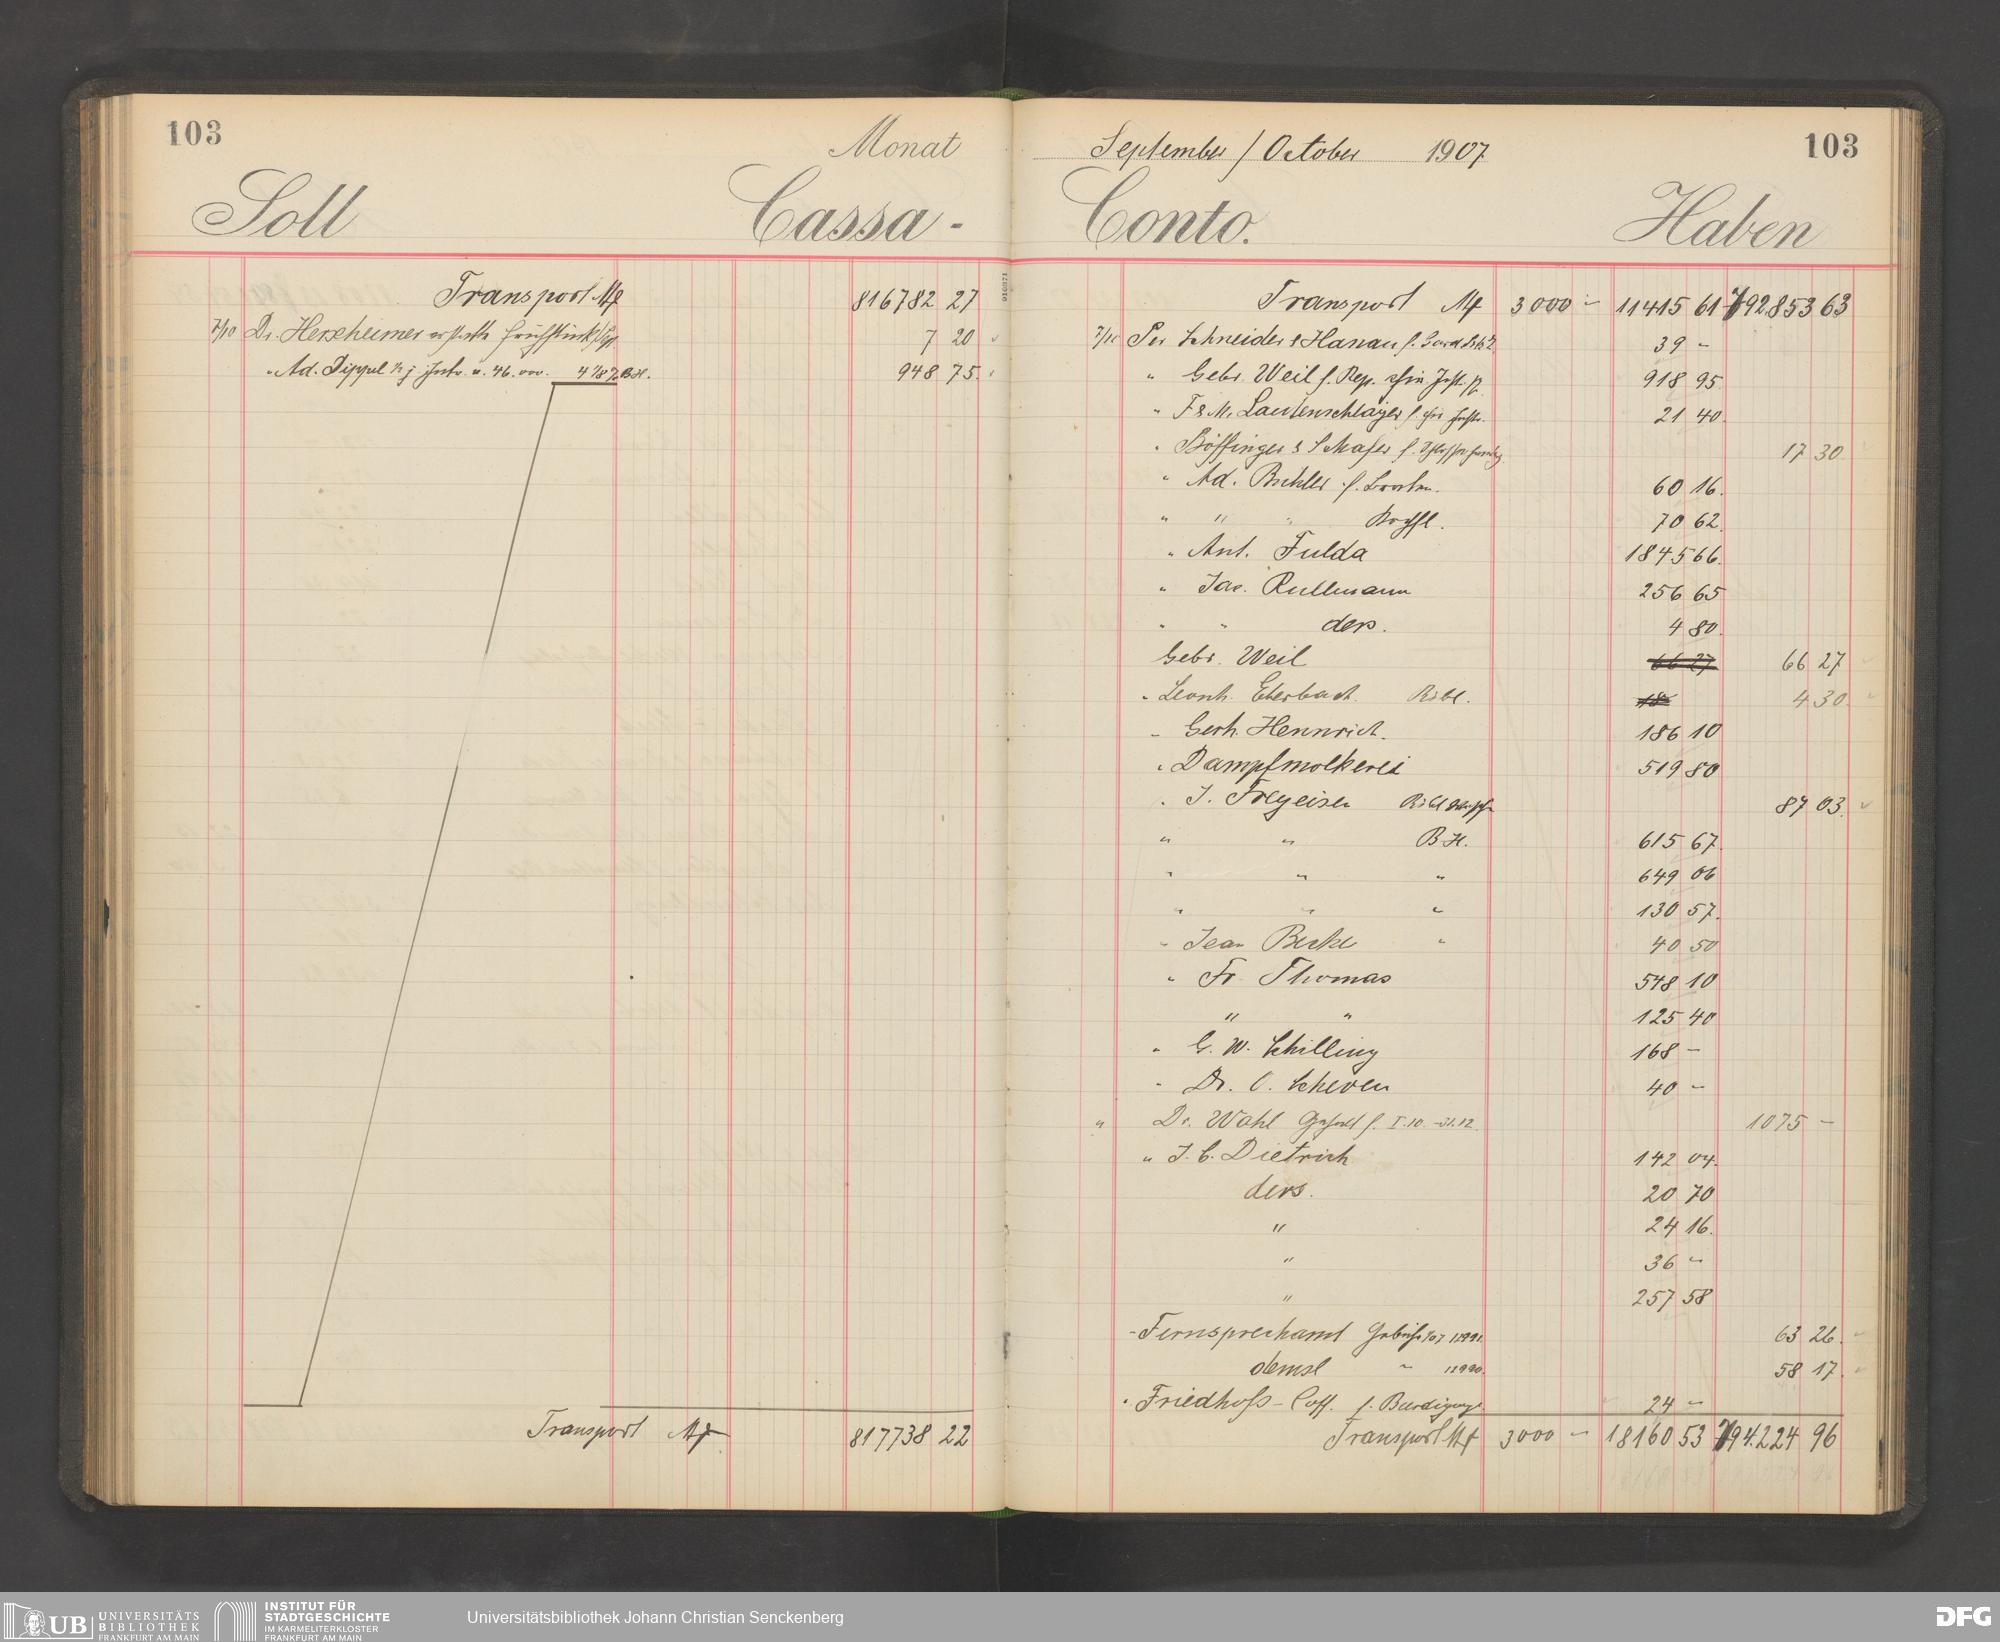 103
Monat
Soll
Cassa-
Transport M 816782 27
7/10 Dr. Herxheimer erstattete Frühstück 7 20
" Ad. Dippel 46.000. 4 1/8 % B.H. 948 75.
Transport M 817738 22
September / October 1907
103
Conto.
Haben
Transport M 3000 – 11415 61 792853 63
7/10 Per Schneider & Hanau f. 39 –
" Gebr. Weil f. Rep. 918 95
" F & M. Lautenschläger f. 21 40.
" Böffinger & Schäfer f. 17 30
" Ad. f. 60 16.
" " " 70 62.
" Ant. Fulda 1845 66.
" Jac. Rullmann 256 65
" " ders. 4 80.
Gebr. Weil 66 27 66 27
" Leonh. Eberbach 18 4 30.
" Gerh. Hennrich. 186 10
" Dampfmolkerei 519 80
" J. Freyeisen 87 03.
" " B.H. 615 67.
" " " 649 06
" " " 130 57.
" Jean " 40 50
" Fr. Thomas 548 10
" " 125 40
" G. W. Schilling 168 –
" Dr. O. Scheven 40 –
" Dr. Wahl Gehalt f. I.10.–31.12. 1075 –
" J. C. Dietrich 142 04.
ders. 20 70
" 24 16.
" 36 –
" 257 58
" Fernsprechamt 11991. 63 26.
demsl " 11990. 58 17.
" Friedhofs- f. 24 –
Transport M 3000 – 18160 53 794.224 96
UB UNIVERSITÄTS
BIBLIOTHEK
FRANKFURT AM MAIN
INSTITUT FÜR
STADTGESCHICHTE
IM KARMELITERKLOSTER
FRANKFURT AM MAIN
Universitätsbibliothek Johann Christian Senckenberg
DFG